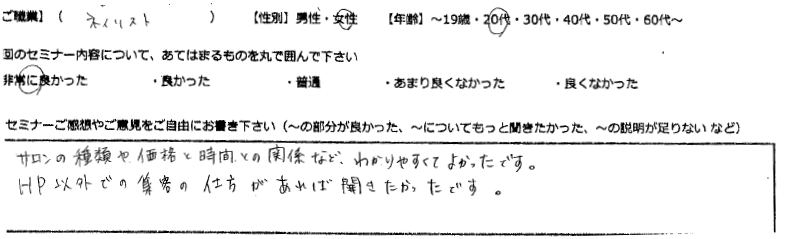 ご職業】（ ネイリスト ） 【性別】男性・女性 【年齢】～19歳・20代・30代・40代・50代・60代～
回のセミナー内容について、あてはまるものを丸で囲んで下さい
非常に良かった ・良かった ・普通 ・あまり良くなかった ・良くなかった
セミナーご感想やご意見をご自由にお書き下さい（～の部分が良かった、～についてもっと聞きたかった、～の説明が足りない など）
サロンの種類や価格と時間との関係など、わかりやすくてよかったです。
HP以外での集客の仕方があれば聞きたかったです。